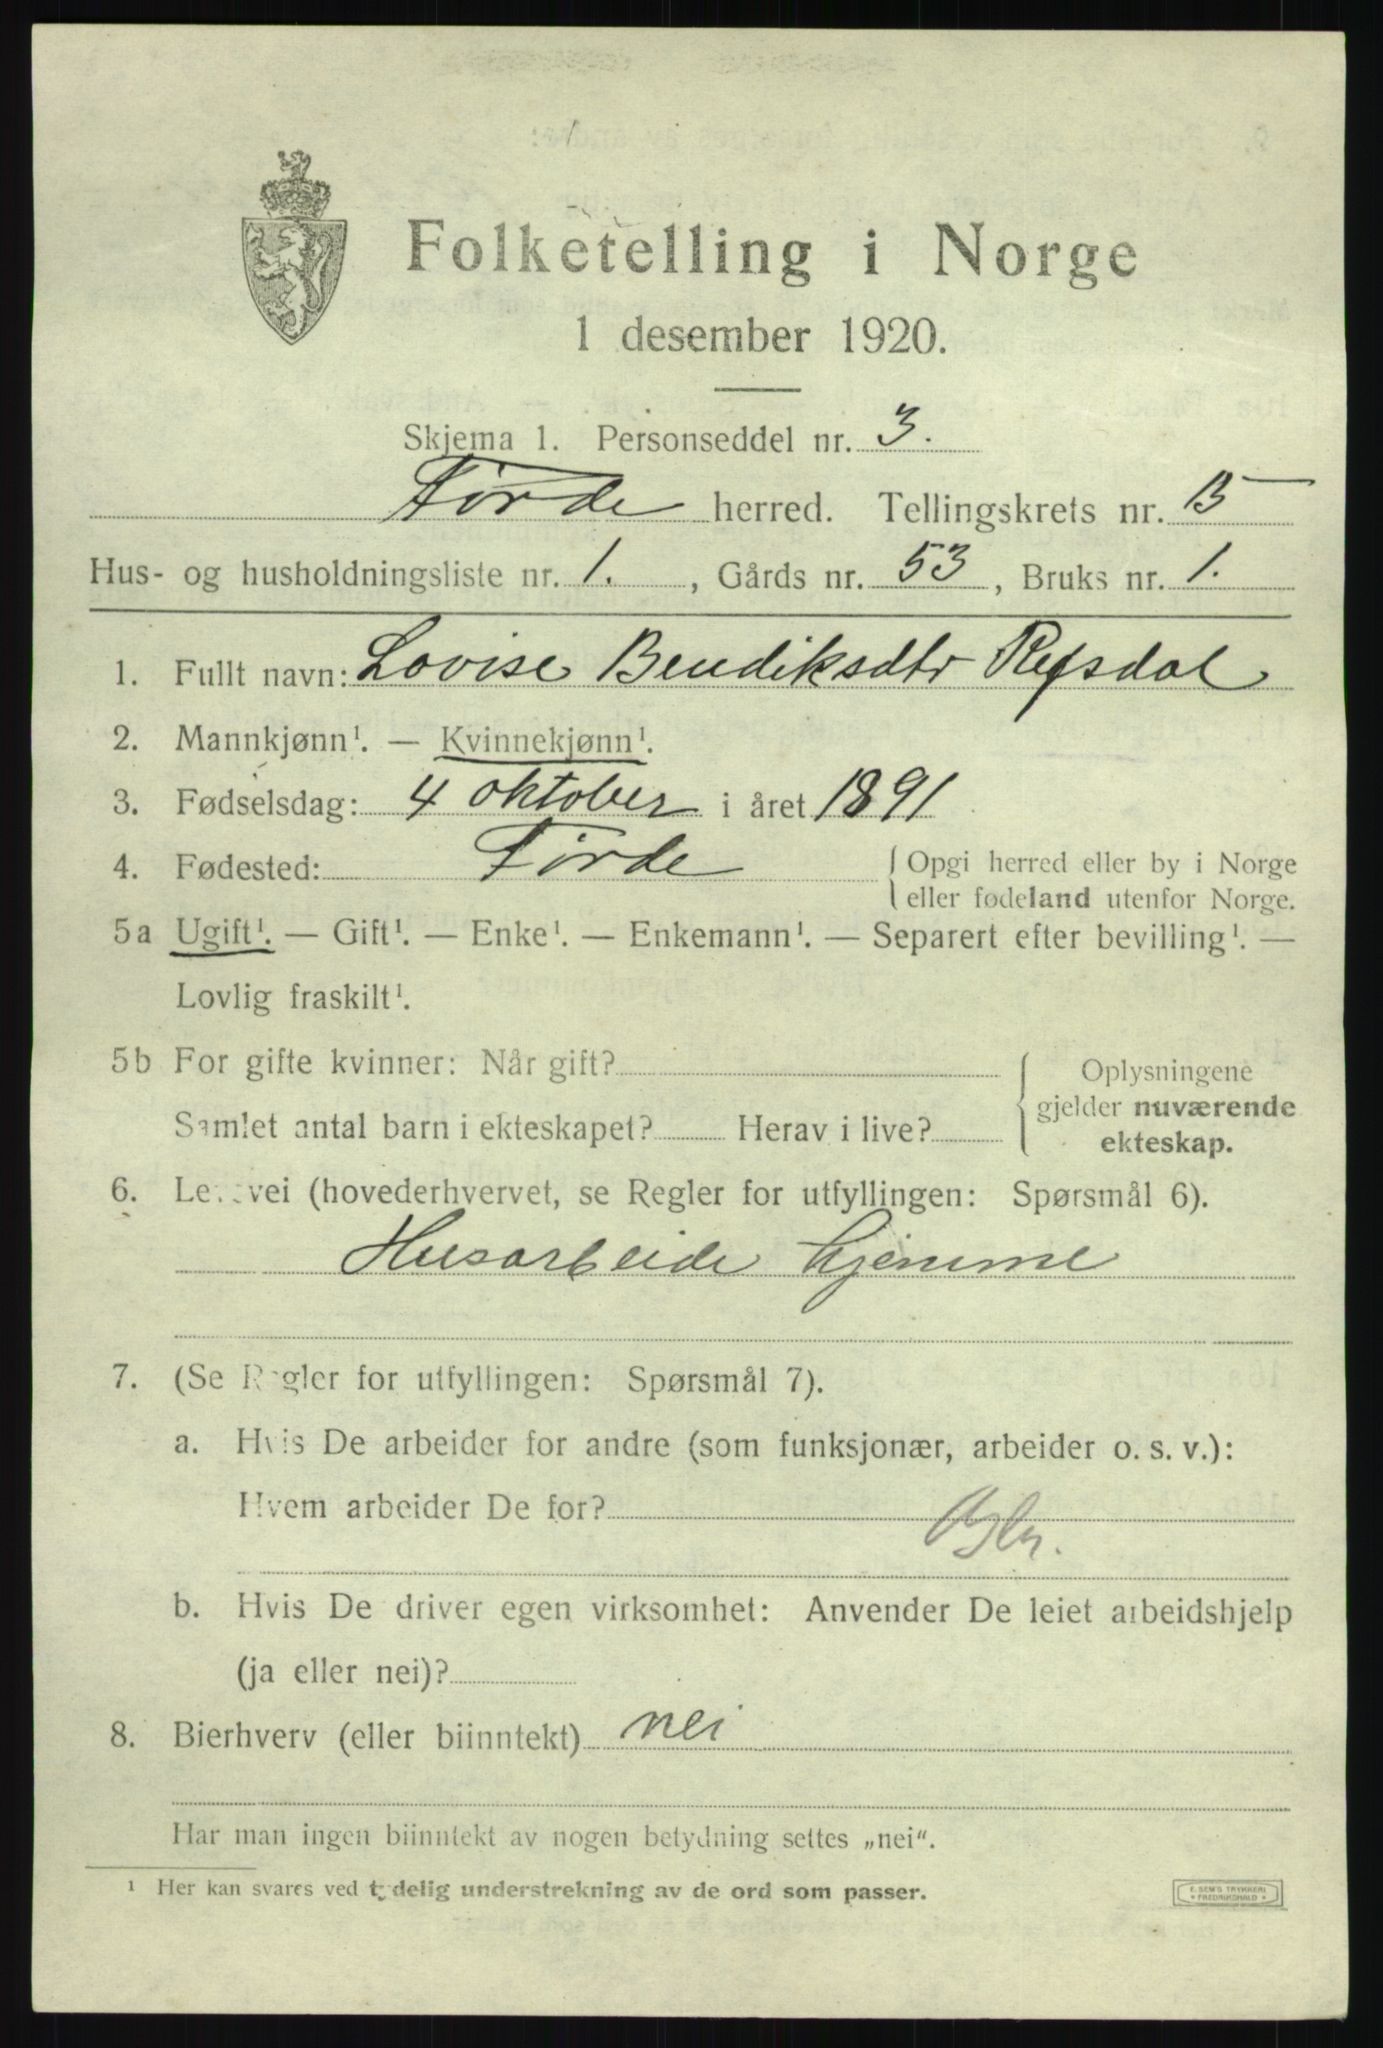 Folketelling i Norge
1 desember 1920.
Skjema 1. Personseddel nr. 3.
Førde herred. Tellingskrets nr. 15
Hus- og husholdningsliste nr. 1. , Gårds nr. 53 , Bruks nr. 1.
1. Fullt navn: Lovise Bendiksdtr Refsdal
2. Mannkjønn¹. — Kvinnekjønn¹.
3. Fødselsdag: 4 oktober i året 1891
4. Fødested: Førde { Opgi herred eller by i Norge
eller fødeland utenfor Norge.
5a Ugift¹. — Gift¹. — Enke¹. — Enkemann¹. — Separert efter bevilling¹. —
Lovlig fraskilt¹.
5b For gifte kvinner: Når gift?
Samlet antal barn i ekteskapet? Herav i live?
Oplysningene
gjelder nuværende
ekteskap.
6. Levevei (hovederhvervet, se Regler for utfyllingen: Spørsmål 6).
Husarbeide hjemme
7. (Se Regler for utfyllingen: Spørsmål 7).
a. Hvis De arbeider for andre (som funksjonær, arbeider o. s. v.):
Hvem arbeider De for?
b. Hvis De driver egen virksomhet: Anvender De leiet arbeidshjelp
(ja eller nei)?
8. Bierhverv (eller biinntekt) nei
Har man ingen biinntekt av nogen betydning settes „nei".
¹ Her kan svares ved tydelig understrekning av de ord som passer.
E. SEM'S TRYKKERI
* FREDRIKSHALD *